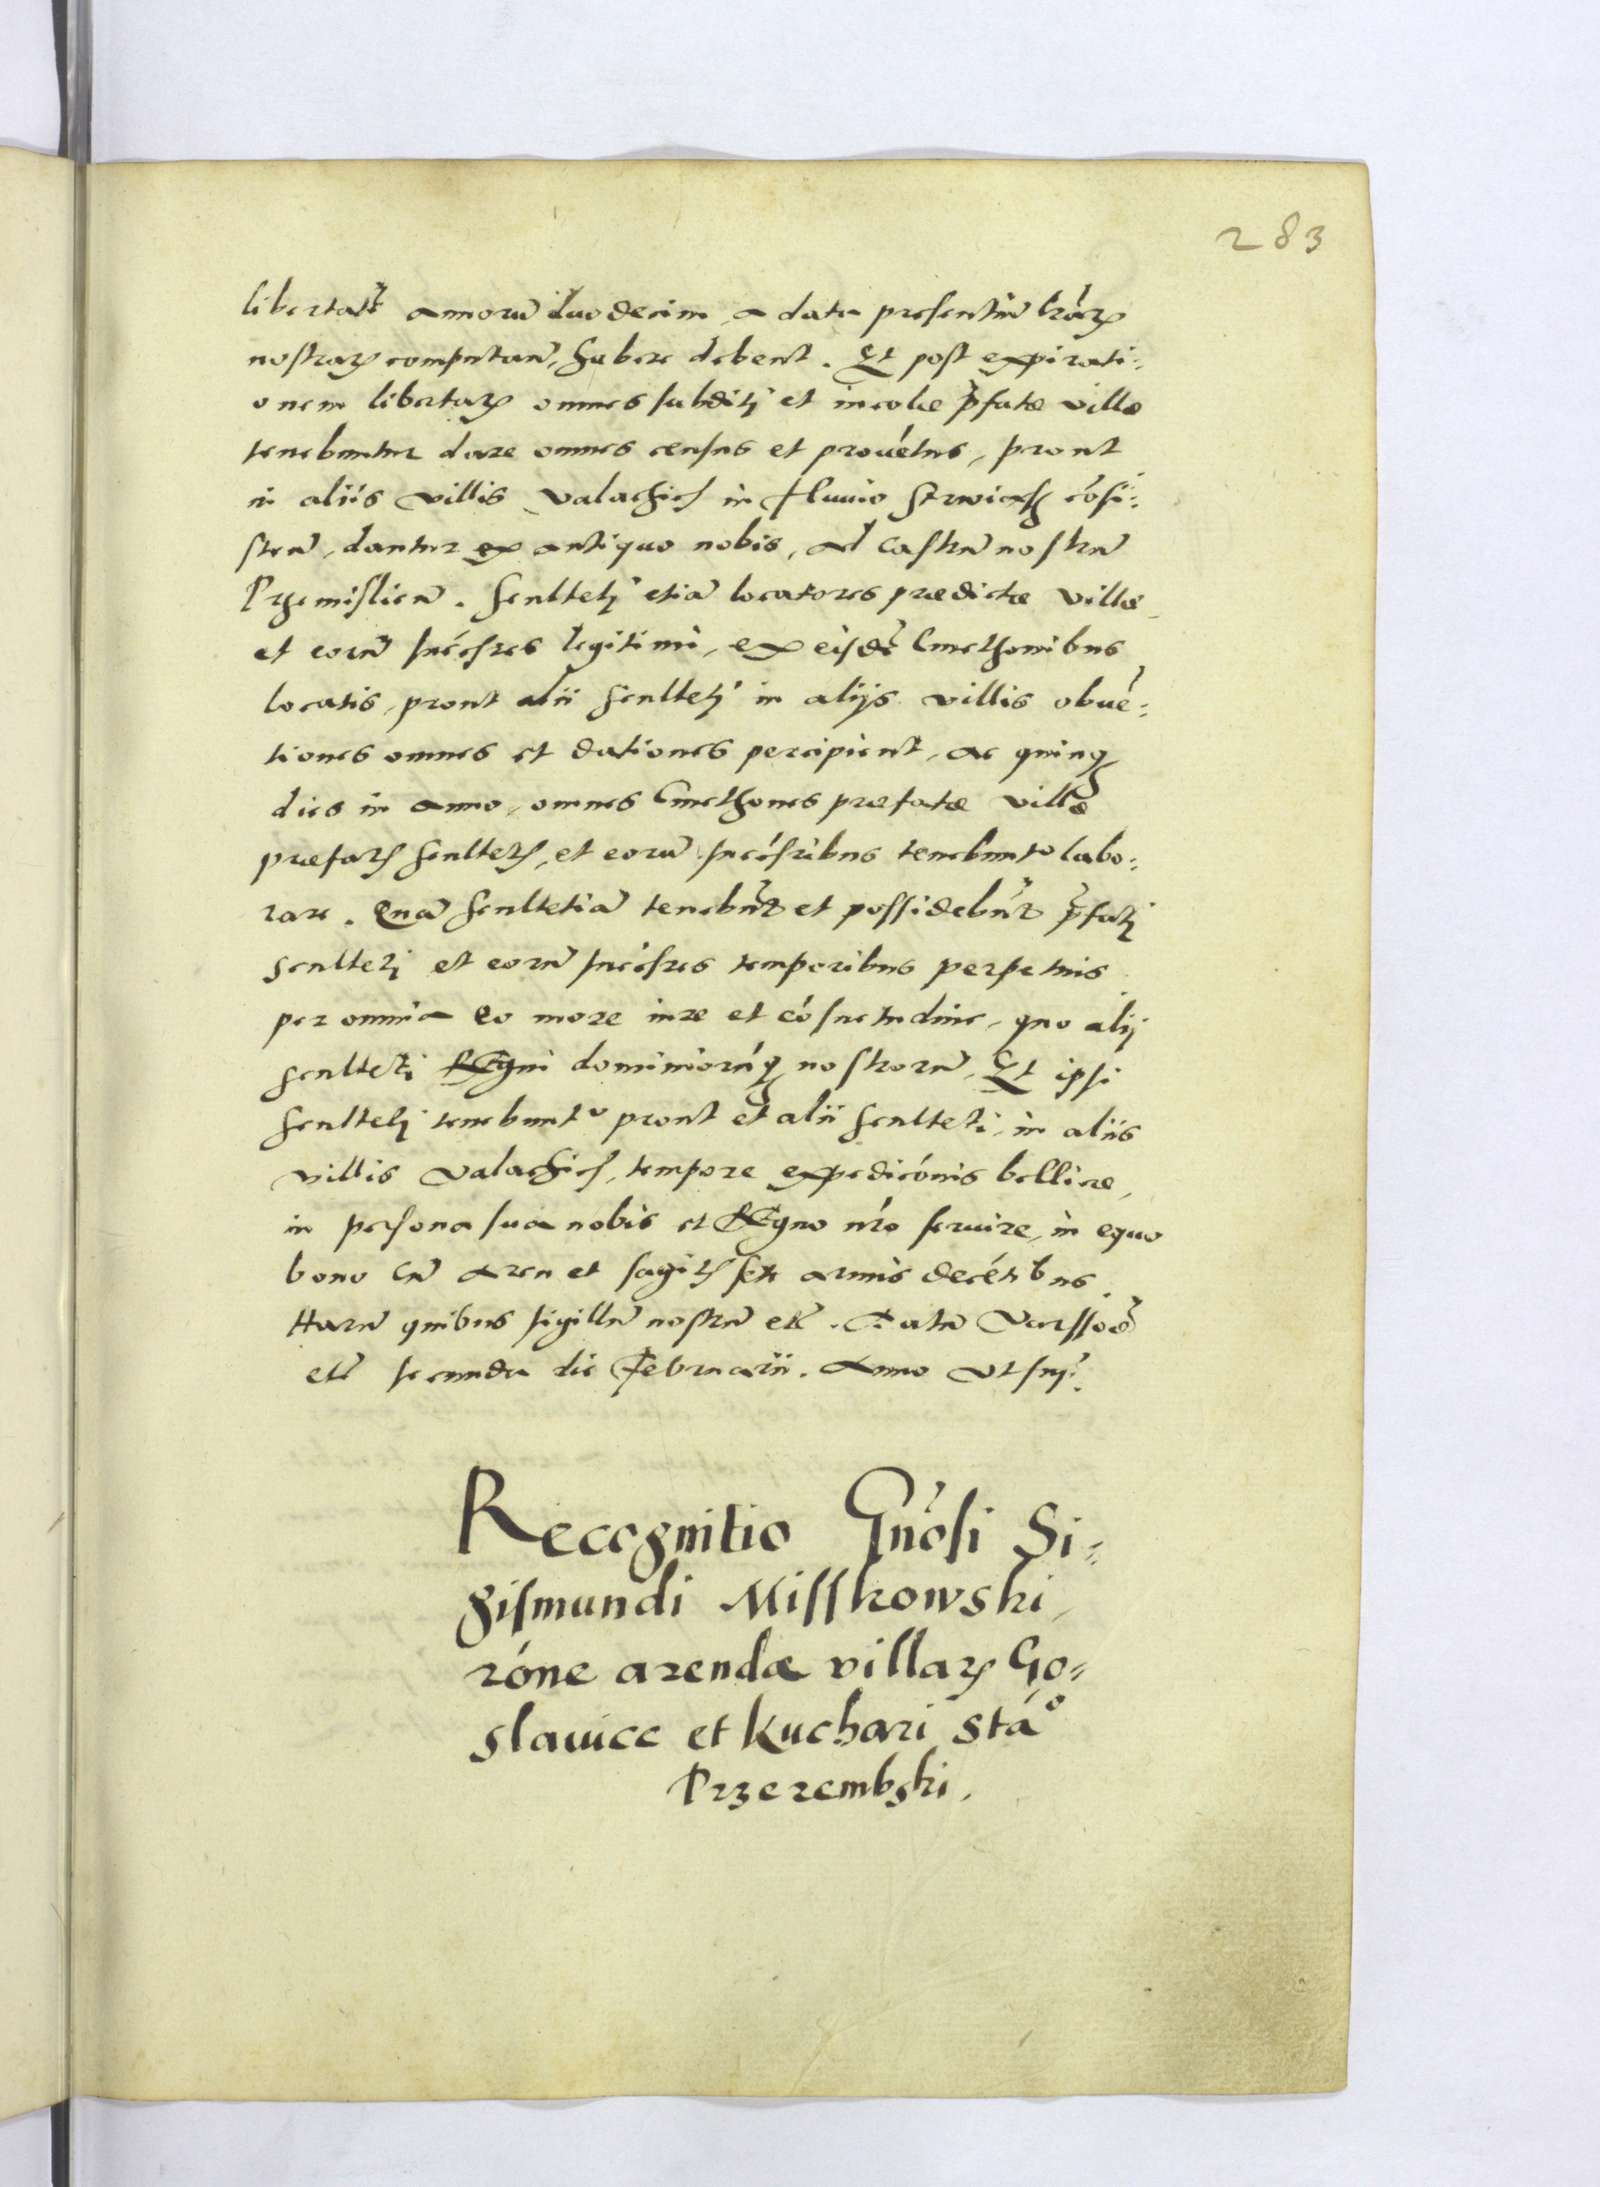 283
libertatẽ annorũ duodecim, a data presentiũ lr̃arꝫ
nostrarꝫ computanđ, habere debent. Et post expirati=
onem libertatꝫ omnes subditi et incolæ p̃fatæ villæ
tenebuntur dare omnes census et prouẽtus, prout
in aliis villis valachicꝫ in fluuio Strwiąsz cõsi=
stenđ, dantur ex antiquo nobis, ad castrũ nostrũ
Przemislien̄. Sculteti etiã locatores prædictæ villæ
et eorũ succẽsres legitimi, ex eisdẽ Cmethonibus
locatis, prout alii sculteti in alijs villis obuẽ=
tiones omnes et dationes percipient, ac quinqꝫ
dies in anno, omnes Cmethones præfatæ villæ
præfatꝫ scultetꝫ, et eorũ succẽsribus tenebunt᷑ labo=
rare. Quã scultetiã tenebũt et possidebũt p̃fati
sculteti et eorũ succẽsres temporibus perpetuis
per omnia eo more iure et cõsuetudine, quo alij
sculteti Regni dominiorũqꝫ nostrorũ, Et ipsi
sculteti tenebunt᷑ prout et alii sculteti, in aliis
villis valachicꝫ, tempore expedicõnis bellicæ,
in persona sua nobis et Regno nr̃o seruire, in equo
bono cũ arcu et sagitꝫ seu armis decẽtibus.
Harũ quibus sigillũ nostrũ etc̃. Datũ Varssouiẽ
etc̃ secunda die Februarii. Anno Vt supͣ.
Recognitio Gñosi Si=
gismundi Misskowski,
rõne arendæ villarꝫ Go=
slauicc et Kuchari Stã°
Przerembski.